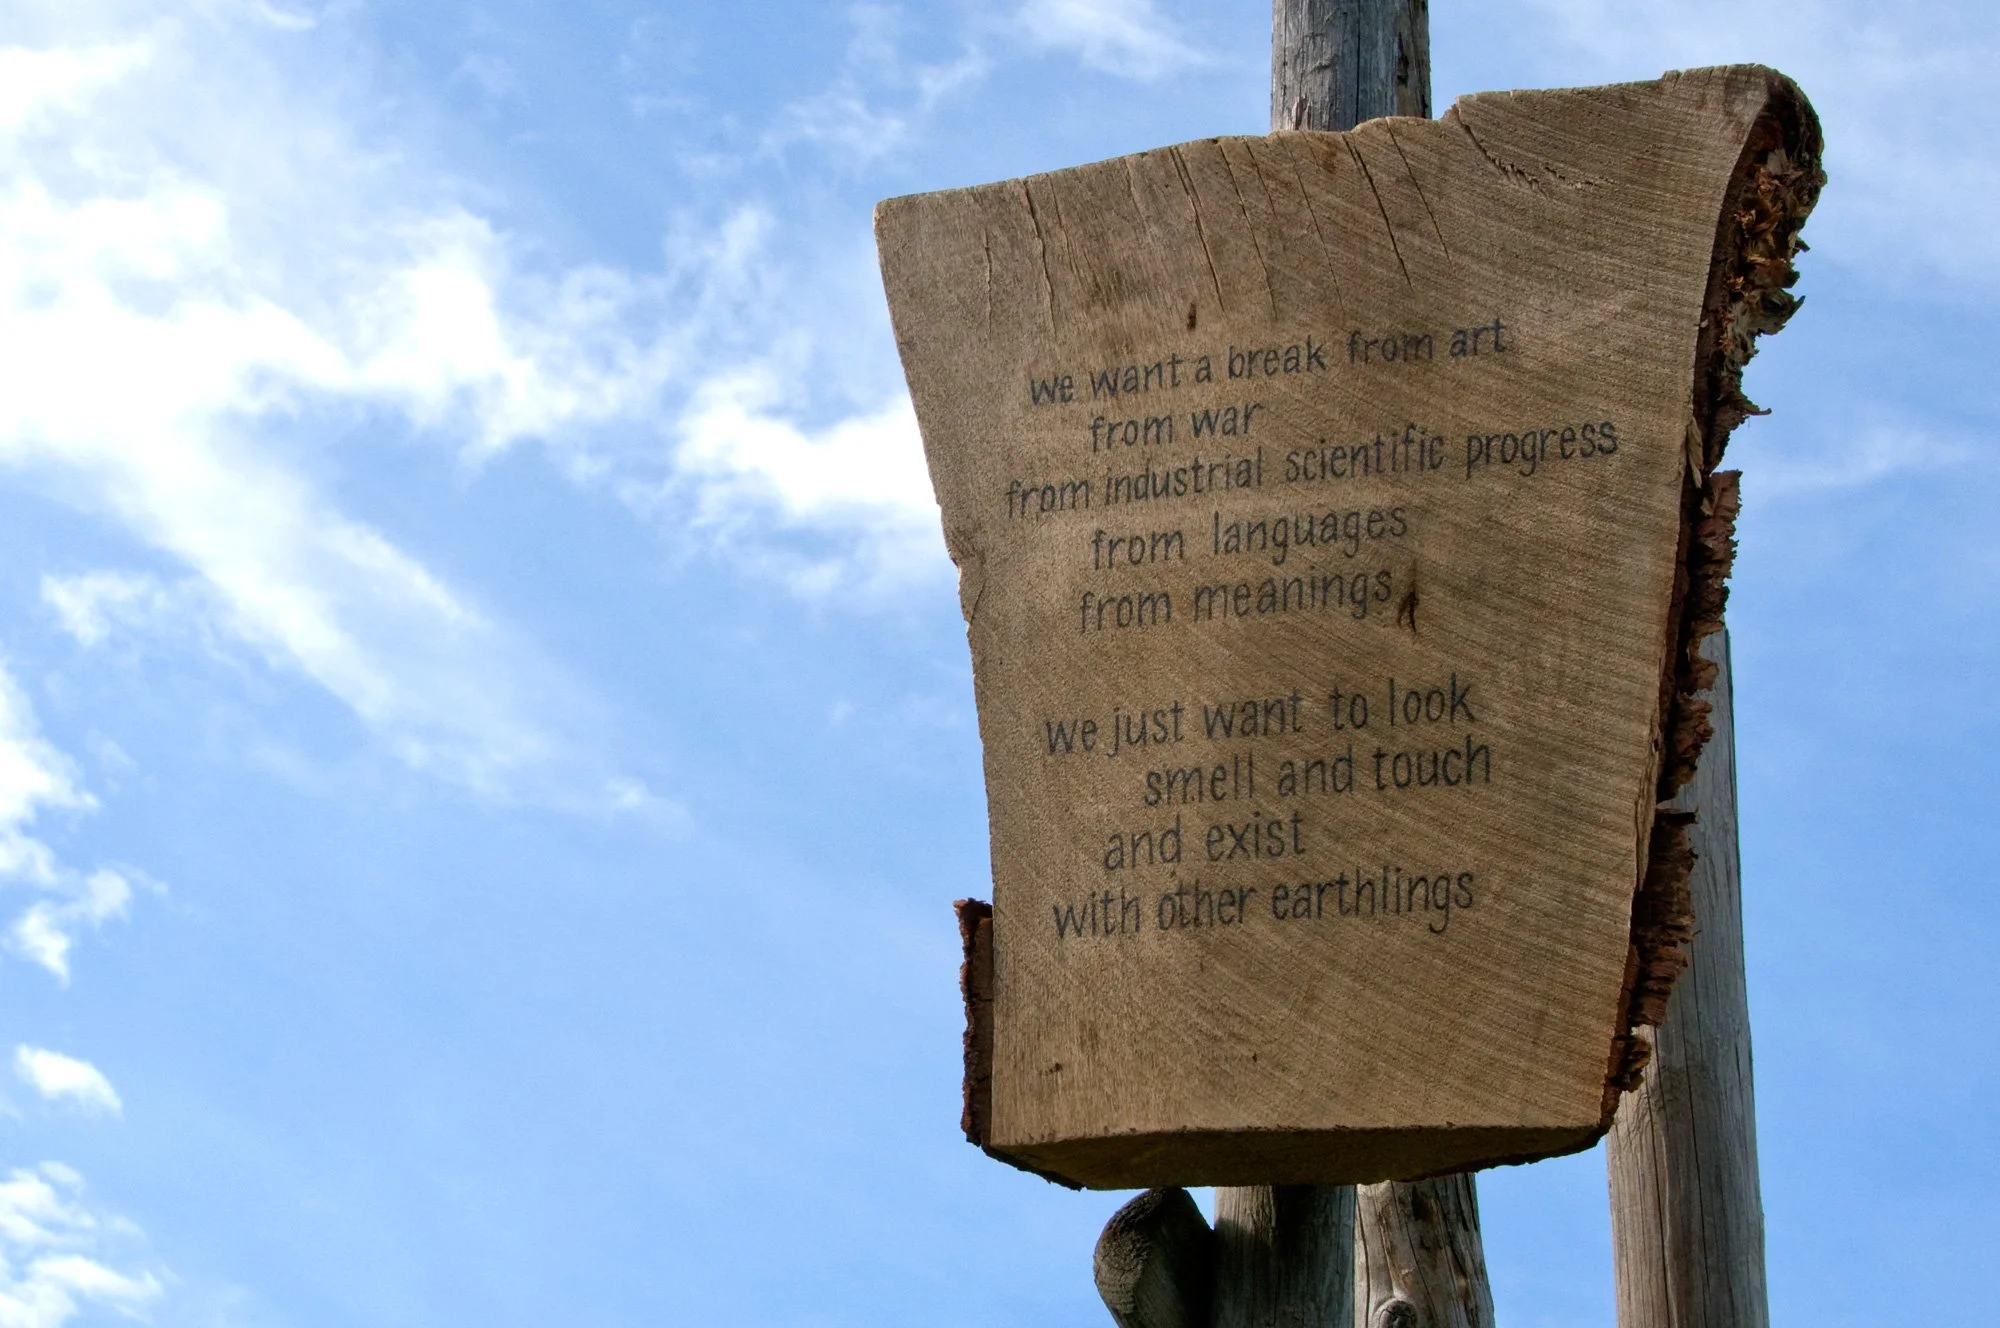 we want a break from art
from war
from industrial scientific progress
from languages
from meanings
we just want to look
smell and touch
and exist
with other earthlings